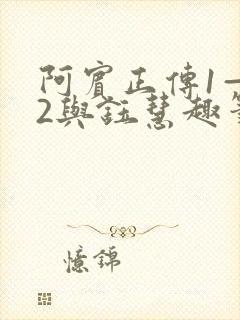 阿賓正傳1—
2與註慧趣
憶錦